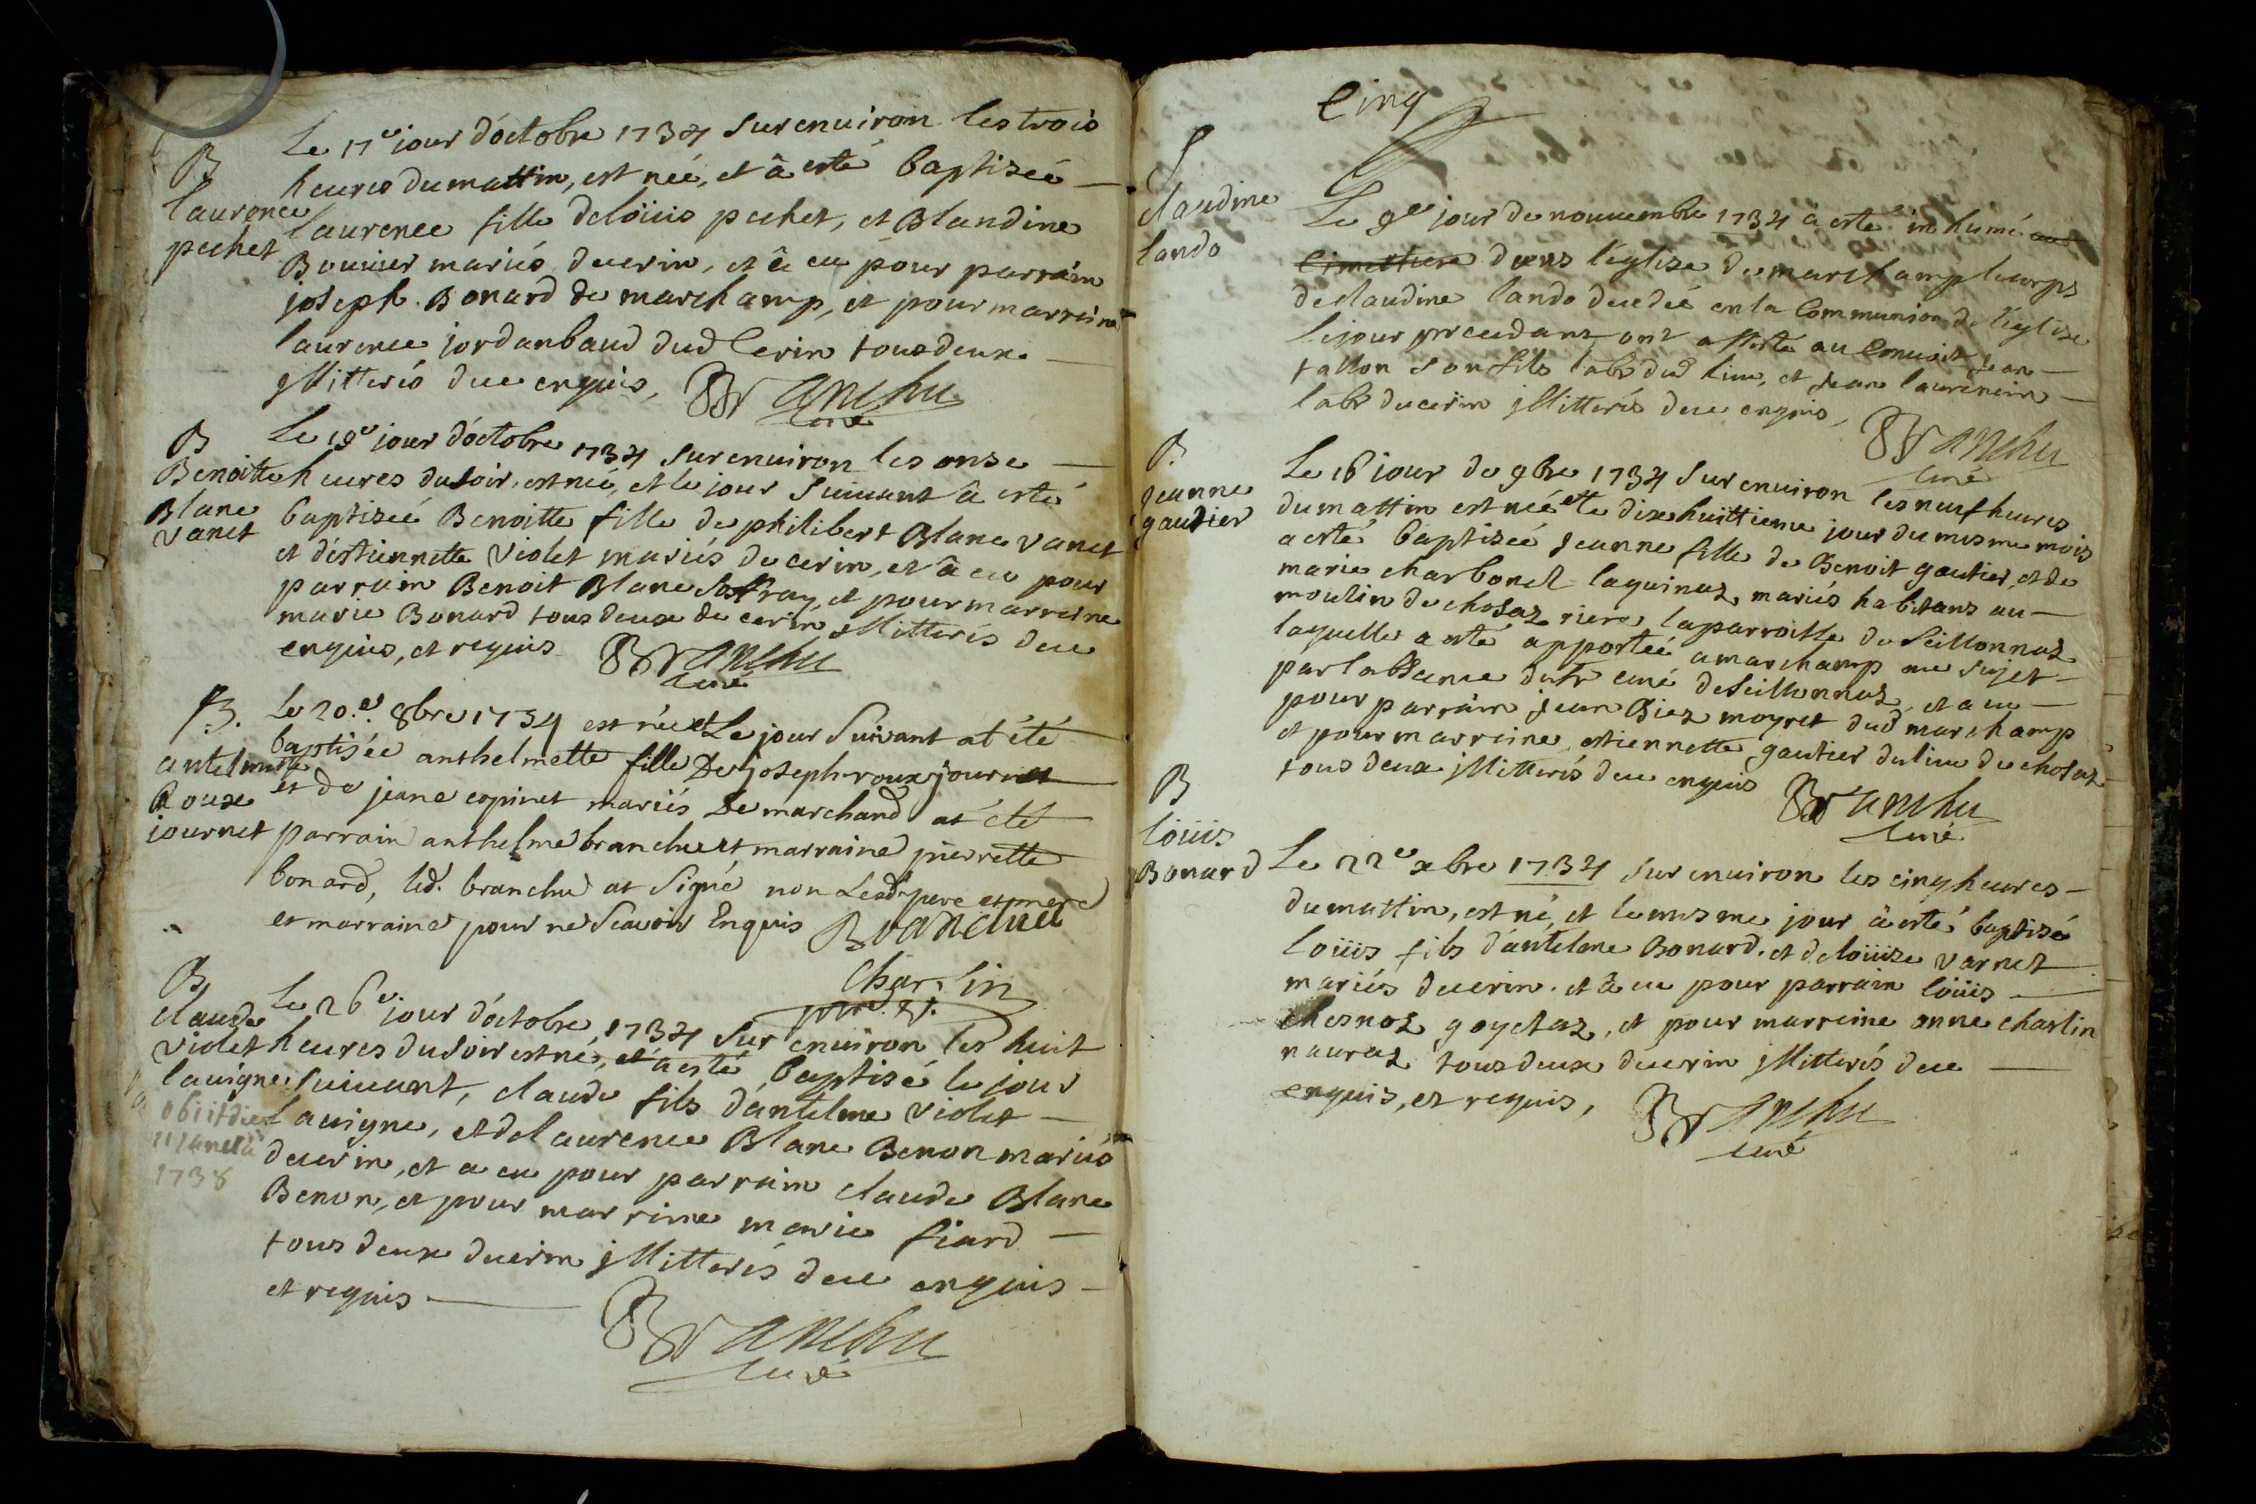 B
laurence
pechet
Le 17e jour d'octobre 1734 sur enuiron les trois
heures du mattin, est neé, et â esté baptiseé
laurence fille de loüis pechet, et Blandine
Bouuier mariés de cerin, et â eu pour parrain
joseph Bonard de marchamp, et pour marreine
laurence jordanbaud dud Cerin tous deux
jllitterés de ce enquis,
Branchu
Curé
B
Benoitte
Blanc
Vanet
Le 19e jour d'octobre 1734 sur enuiron les onse
heures du soir, est neé, et le jour suiuant â esté
baptiseé Benoitte fille de philibert Blanc Vanet
et d'estiennette Violet mariés de cerin, et â eu pour
parrain Benoit Blanc et pour marreine
marie Bonard tous deux de cerin jllitterés de ce
enquis, et requis
Branchu
curé
B.
antelmette
Roux
journet
Le 20.e 8bre 1734 est neé et Le jour Suivant at été
baptisée anthelmette fille De joseph roux journet
et de jeane espinet mariés De marchand at été
parrain anthelme branchu et marraine pierrette
bonard, led. branchu at Signé non Lesd. pere et mere
et marraine pour ne Scavoir Enquis Branchu
Charlin
B
claude
Violet
lauigne
obiit die
11 januarii
1738
Le 26e. jour d'octobre 1734 sur enuiron les huit
heures du soir est né, et a esté baptisé le jour
suiuant, claude fils d'antelme Violet
lauigne, et de laurence Blanc Benon mariés
de cerin, et a eu pour parrain claude Blanc
Benon, et pour marreine marie fiard
tous deux de cerin jllitterés de ce enquis
et requis
Branchu
curé
Cinq
S
claudine
lando
Le 9e jour de nouuembre 1734 a esté inhumé au
Cimettiere dans l'eglise de marchamp le corps
de claudine lando decedeé en la Communion de l'eglise
le jour precedant ont assisté au Conuoit jean
tallon son fils labr dud lieu, et jean laurencin
labr de cerin jllitterés de ce enquis,
Branchu
Curé
B.
jeanne
gautier
Le 16 jour de 9bre 1734 sur enuiron les neuf heures
du mattin est neé et le dixehuittieme jour du mesme mois
a esté baptiseé jeanne fille de Benoit gautier, et de
marie charbonet laquinaz, mariés habitans au
moulin de chosaz riere la parroisse de Seillonnaz
laquelle a esté apporteé a marchamp au sujet
par l'absence du Sr curé de Seillonnaz, et a eu
pour parrain jean Biez moyret dud marchamp
et pour marreine estiennette gautier du lieu de chosaz
tous deux jllitterés de ce enquis
Branchu
curé
B
loüis
Bonard
Le 22e xbre 1734 sur enuiron les cinq heures
du mattin, est né, et le mesme jour â esté baptisé
loüis fils d'antelme Bonard. et de loüise Varnet
mariés de cerin. et â eu pour parrain loüis
chesnoz goyetaz, et pour marreine anne charlin
nauraz tous deux de cerin jllitterés de ce
enquis, et requis,
Branchu
curé